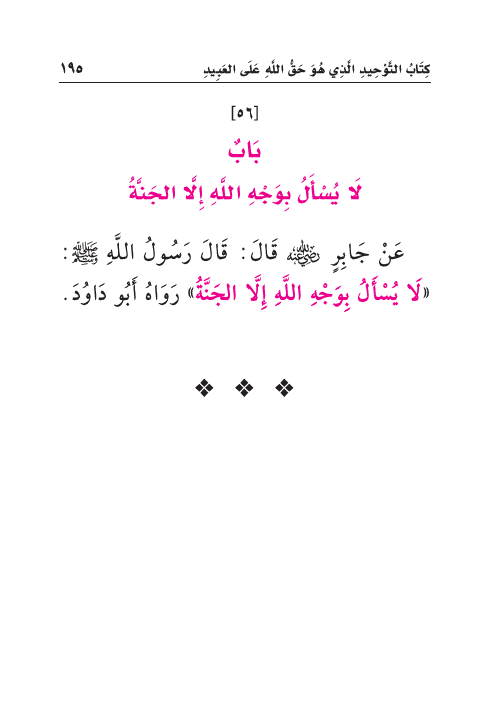 كِتَابُ التَّوْحِيدِ الَّذِي هُوَ حَقُّ اللَّهِ عَلَى العَبِيدِ ١٩٥
[٥٦]
بَابٌ
لَا يُسْأَلُ بِوَجْهِ اللَّهِ إِلَّا الجَنَّةُ
عَنْ جَابِرٍ رضي الله عنه قَالَ: قَالَ رَسُولُ اللَّهِ ﷺ:
«لَا يُسْأَلُ بِوَجْهِ اللَّهِ إِلَّا الجَنَّةُ» رَوَاهُ أَبُو دَاوُدَ.